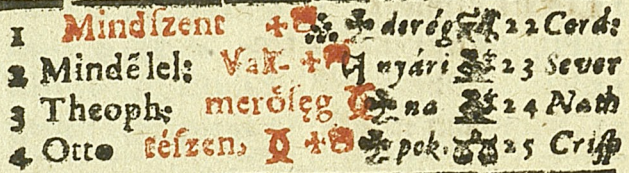 1 Mindſzent derég 22 Cord:
2 Mindẽlel: Vak- nyári 23 Sever
3 Theoph: merőlęg na 24 Nath
4 Otto téſzen, pok. 25 Criſp